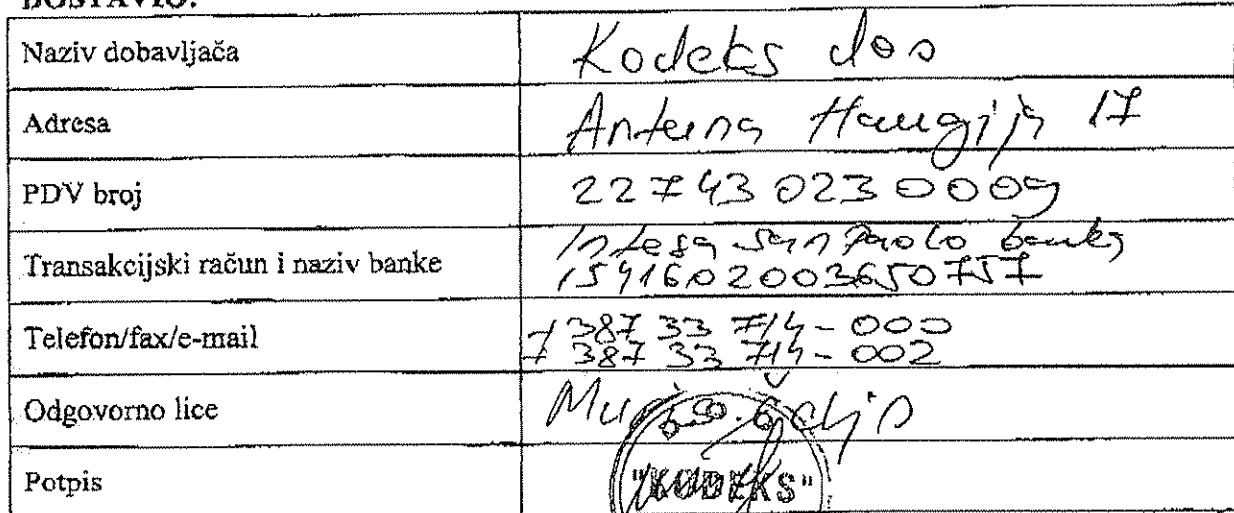 DOSTAVIO:
Naziv dobavljača Kodeks doo
Adresa Antuna Hangija 17
PDV broj 227430230009
Transakcijski račun i naziv banke Intesa SanPaolo banka
1541602003650757
Telefon/fax/e-mail 387 33 714-000
387 33 714-002
Odgovorno lice
Potpis "KODEKS"